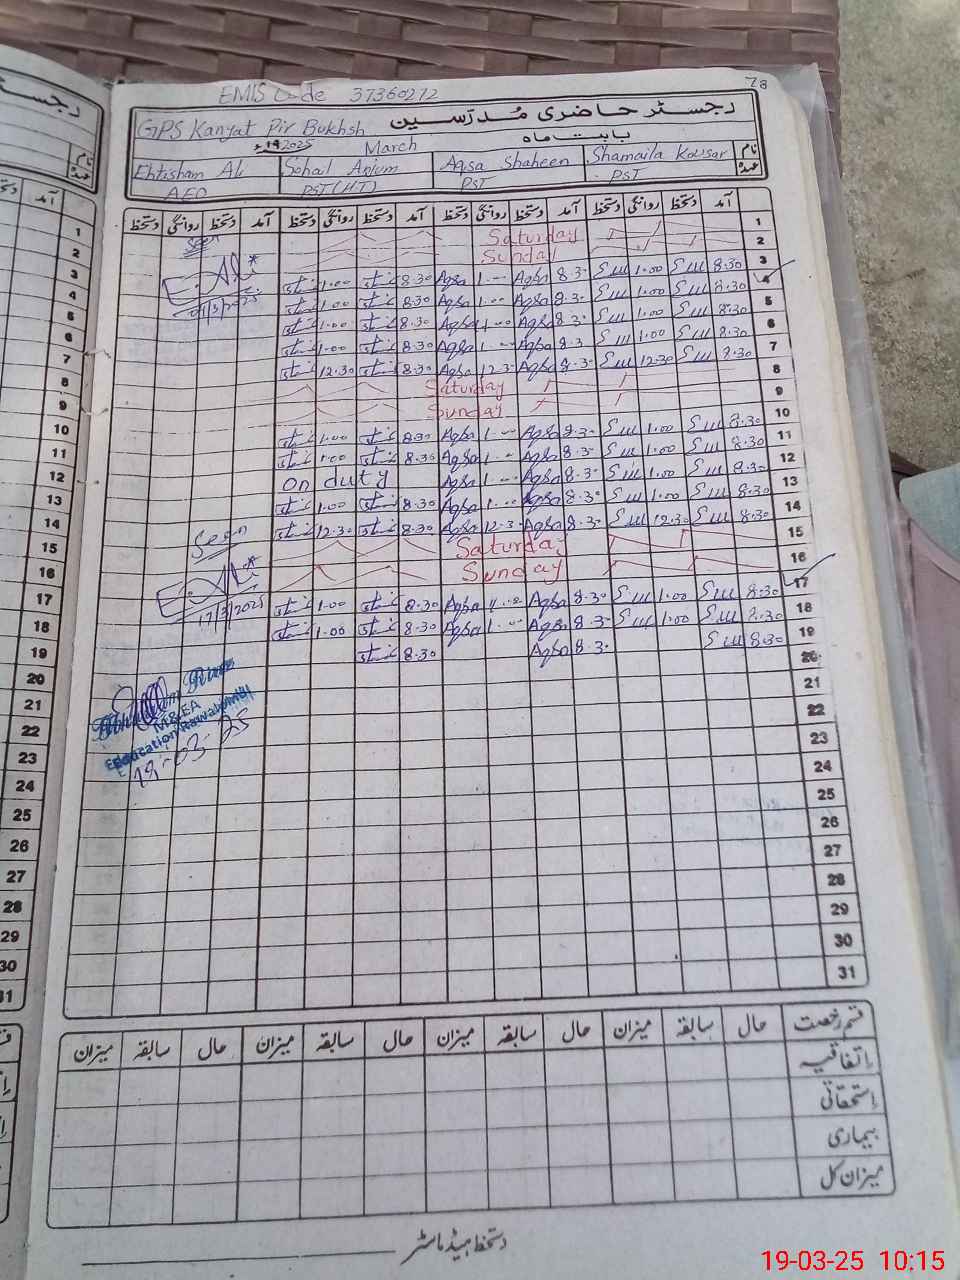 78
EMIS Code 37360272
رجسٹر حاضری مدرسین
GPS Kanyat Pir Bukhsh
بابت ماہ
March
2025
نام
عہدہ
Ehtisham Ali
AEO
Sohail Anjum
PST (H.T)
Aqsa Shaheen
PST
Shamaila Kousar
PST
آمد دستخط روانگی دستخط آمد دستخط روانگی دستخط آمد دستخط روانگی دستخط آمد دستخط روانگی دستخط
Saturday 1
Seen Sunday 2
1.00 8.30 Aqsa 1.00 Aqsa 8.30 1.00 8.30 3
1.00 8.30 Aqsa 1.00 Aqsa 8.30 1.00 8.30 4
1.00 8.30 Aqsa 1.00 Aqsa 8.30 1.00 8.30 5
1.00 8.30 Aqsa 1.00 Aqsa 8.30 1.00 8.30 6
12.30 8.30 Aqsa 12.30 Aqsa 8.30 12.30 8.30 7
Saturday 8
Sunday 9
1.00 8.30 Aqsa 1.00 Aqsa 8.30 1.00 8.30 10
1.00 8.30 Aqsa 1.00 Aqsa 8.30 1.00 8.30 11
on duty Aqsa 1.00 Aqsa 8.30 1.00 8.30 12
1.00 8.30 Aqsa 1.00 Aqsa 8.30 1.00 8.30 13
12.30 8.30 Aqsa 12.30 Aqsa 8.30 12.30 8.30 14
Seen Saturday 15
Sunday 16
17/3/2025 1.00 8.30 Aqsa 1.00 Aqsa 8.30 1.00 8.30 17
1.00 8.30 Aqsa 1.00 Aqsa 8.30 1.00 8.30 18
8.30 Aqsa 8.30 8.30 19
20
21
22
23
24
25
26
27
28
29
30
31
M&EA
Education Rawalpindi
18-03-25
قسم رخصت حال سابقہ میزان حال سابقہ میزان حال سابقہ میزان حال سابقہ میزان
اتفاقیہ
استحقاقی
بیماری
میزان کل
دستخط ہیڈ ماسٹر
رجسٹر
نام
عہدہ
آمد
1
2
3
4
5
6
7
8
9
10
11
12
13
14
15
16
17
18
19
20
21
22
23
24
25
26
27
28
29
30
31
19-03-25 10:15